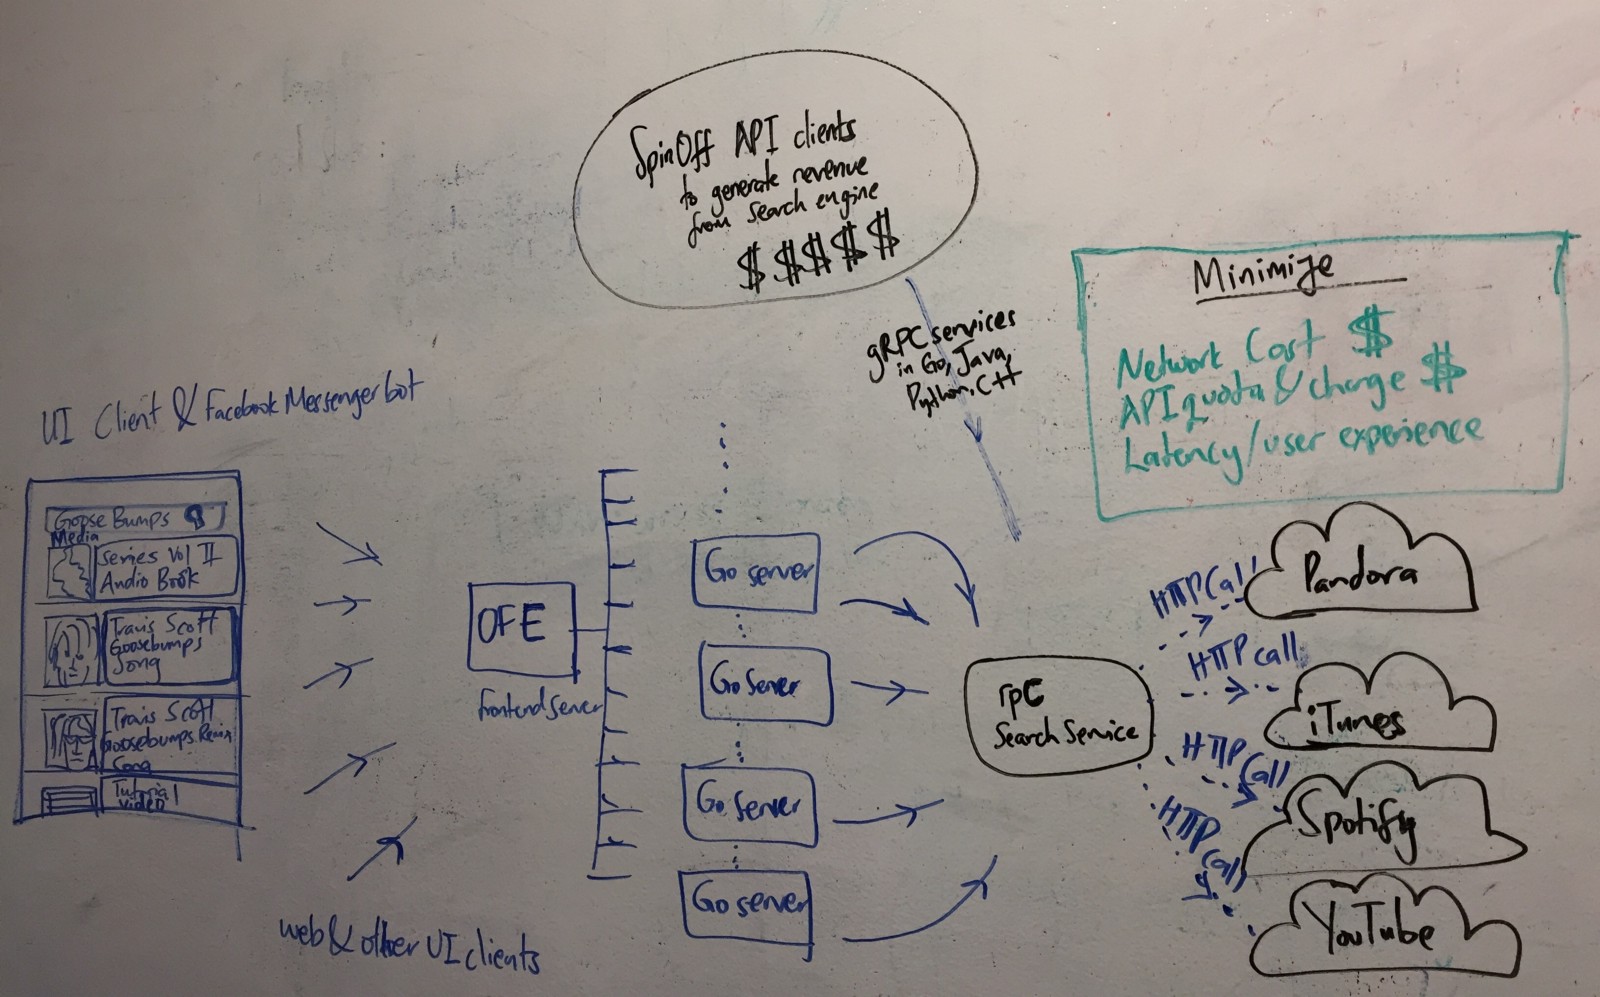 SpinOff API clients
to generate revenue
from search engine
$ $ $ $ $
gRPC services
in Go, Java,
Python, C++
Minimize
Network Cost $
API quota & charge $
Latency/user experience
UI Client & Facebook Messenger bot
Goose Bumps
Media
Series Vol II
Audio Book
Travis Scott
Goosebumps
Song
Travis Scott
Goosebumps Remix
Song
Tutorial
Video
web & other UI clients
OFE
frontend server
Go server
Go Server
Go Server
Go Server
rpC
Search Service
HTTP Call
HTTP call
HTTP Call
HTTP Call
Pandora
iTunes
Spotify
YouTube